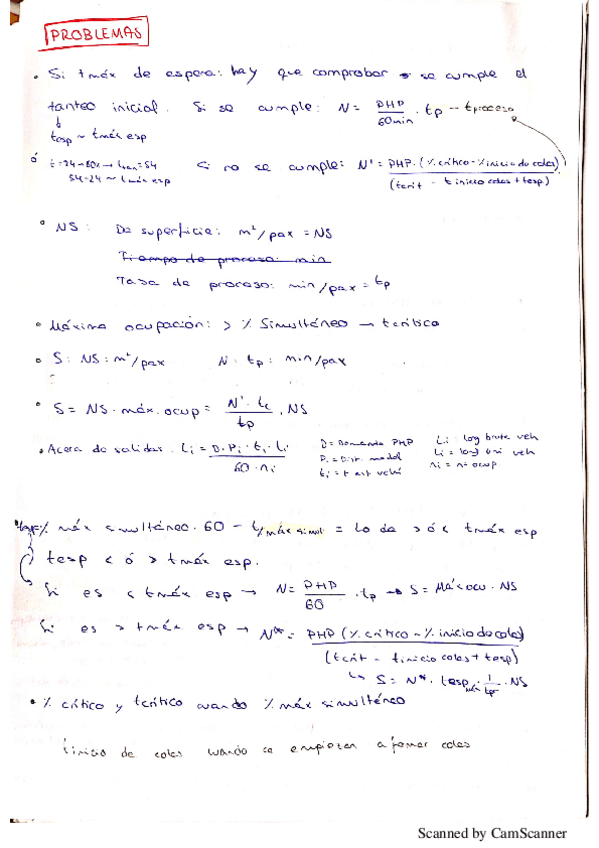 PROBLEMAS
• Si tmáx de espera: hay que comprobar si se cumple el
tanteo inicial. Si se cumple: N = PHP/60min · tp → tproceso
tesp ~ tmáx esp
ó t=24→80% → tan=54
54-24 ~ tmáx esp
Si no se cumple: N' = PHP·(% crítico - % inicio de colas)/(tcrit - t inicio colas + tesp)
• NS: De superficie: m²/pax = NS
Tiempo de proceso: min
Tasa de proceso: min/pax = tp
• Máxima ocupación: > % Simultáneo → tcrítico
• S: NS: m²/pax N: tp: min/pax
• S = NS · máx. ocup = N'·tc/tp · NS
• Acera de salidas: Li = D·Pi·ti·li/60·ni
D = Demanda PHP
Pi = Dist. modal
ti = t est vehi
Li: long bruta veh
li = long uni veh
ni = nº ocup
% máx simultáneo · 60 - t%máx simul = lo da > ó < tmáx esp
tesp < ó > tmáx esp.
Si es < tmáx esp → N = PHP/60 · tp → S = Máx ocu · NS
Si es > tmáx esp → N* = PHP (% crítico - % inicio de colas)/(tcrit - tinicio colas + tesp)
↳ S = N* · tesp máx · 1/tp · NS
• % crítico y tcrítico cuando % máx simultáneo
tinicio de colas cuando se empiezan a formar colas
Scanned by CamScanner